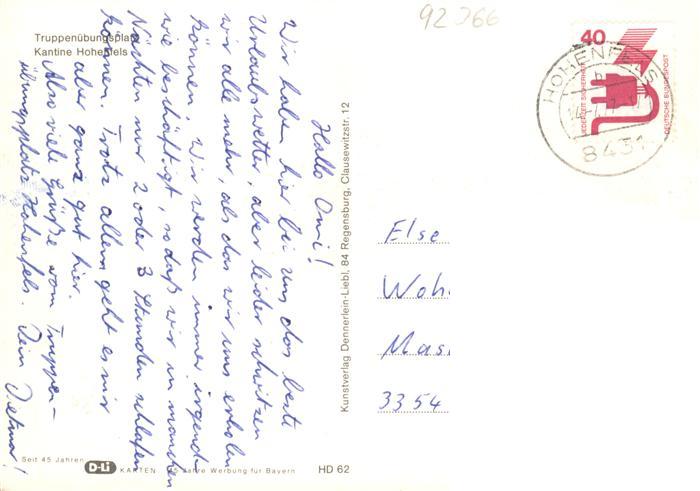 92 366
Truppenübungsplatz
Kantine Hohenfels
Hallo Omi!
Wir haben hier bei uns das beste
Urlaubswetter, aber leider schwitzen
wir alle mehr, als das wir uns erholen
können. Wir werden immer irgend-
wie beschäftigt, so daß wir in manchen
Nächten nur 2 oder 3 Stunden schlafen
können. Trotz allem geht es mir
aber ganz gut hier.
Also viele Grüße vom Truppen-
übungsplatz Hohenfels. Dein Dietmar!
Seit 45 Jahren
D-Li
KARTEN 45 Jahre Werbung für Bayern
HD 62
Kunstverlag Dennerlein-Liebl, 84 Regensburg, Clausewitzstr. 12
40
JEDERZEIT SICHERHEIT
DEUTSCHE BUNDESPOST
HOHENFELS
b
8431
Else
Woh
Mas
3354